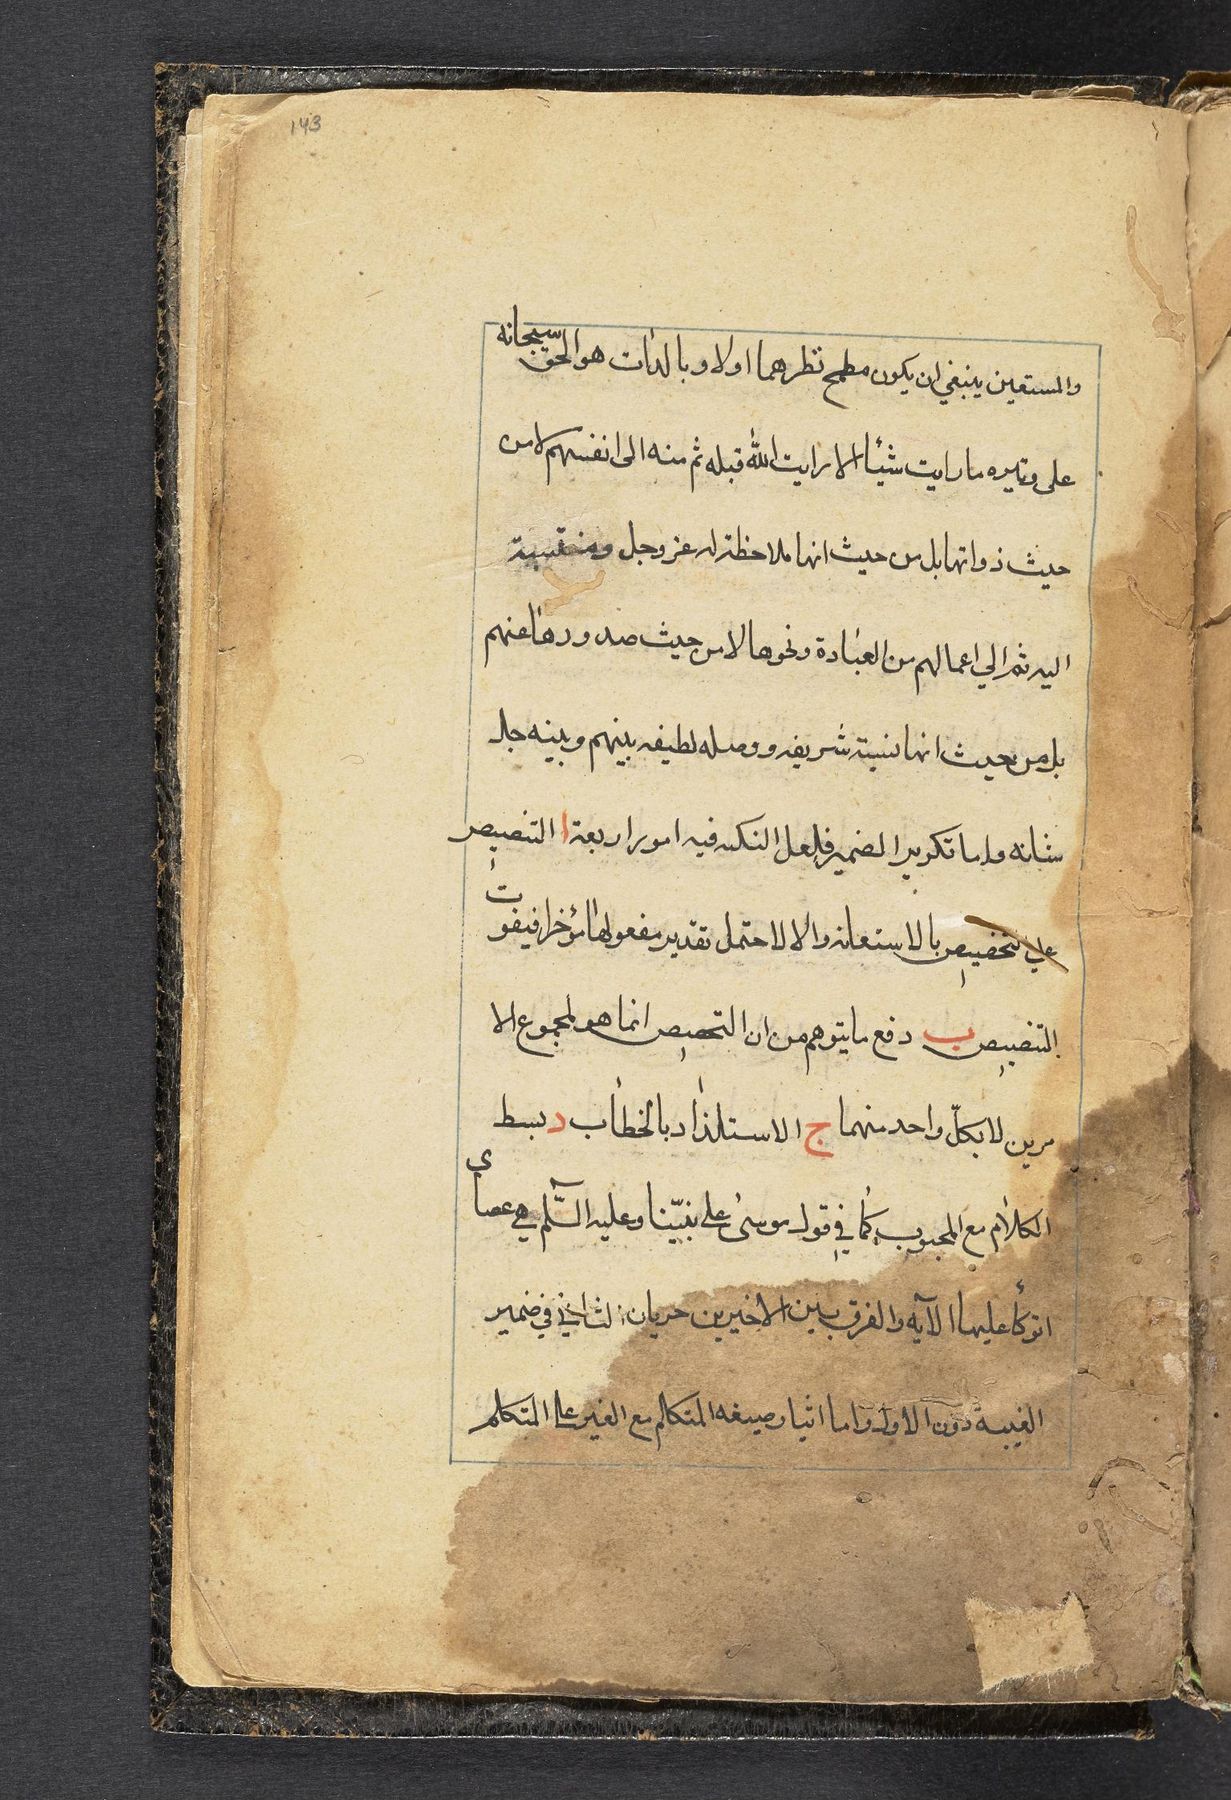 143
والمستعين ينبغي ان يكون مطمح نظرهما اولا وبالذات هو الحق سبحانه
على وتيره ما رايت شيئا الا رايت الله قبله ثم منه الى انفسهم لا من
حيث ذواتها بل من حيث انها ملاحظة له عز وجل ومنتسبة
اليه ثم الي اعمالهم من العبادة ونحوها لا من حيث صدورها عنهم
بل من حيث انها نسبة شريفه ووصله لطيفه بينهم وبينه جل
شانه واما تكرير الضمير فلعل النكته فيه امور اربعة ا التنصيص
علي تخصيص بالاستعانه والا لاحتمل تقدير مفعولها مؤخرا فيفوت
التنصيص ب دفع ما يتوهم من ان التخصيص انما هو لمجموع الا
مرين لا بكل واحد منهما ج الاستلذاذ بالخطاب د بسط
الكلام مع المحبوب كما في قول موسى على نبينا وعليه السلم هي عصاي
اتوكأ عليها الآيه والفرق بين الاخيرين جريان الثاني في ضمير
الغيبة دون الاول واما ايثار صيغه المتكلم مع الغير على المتكلم